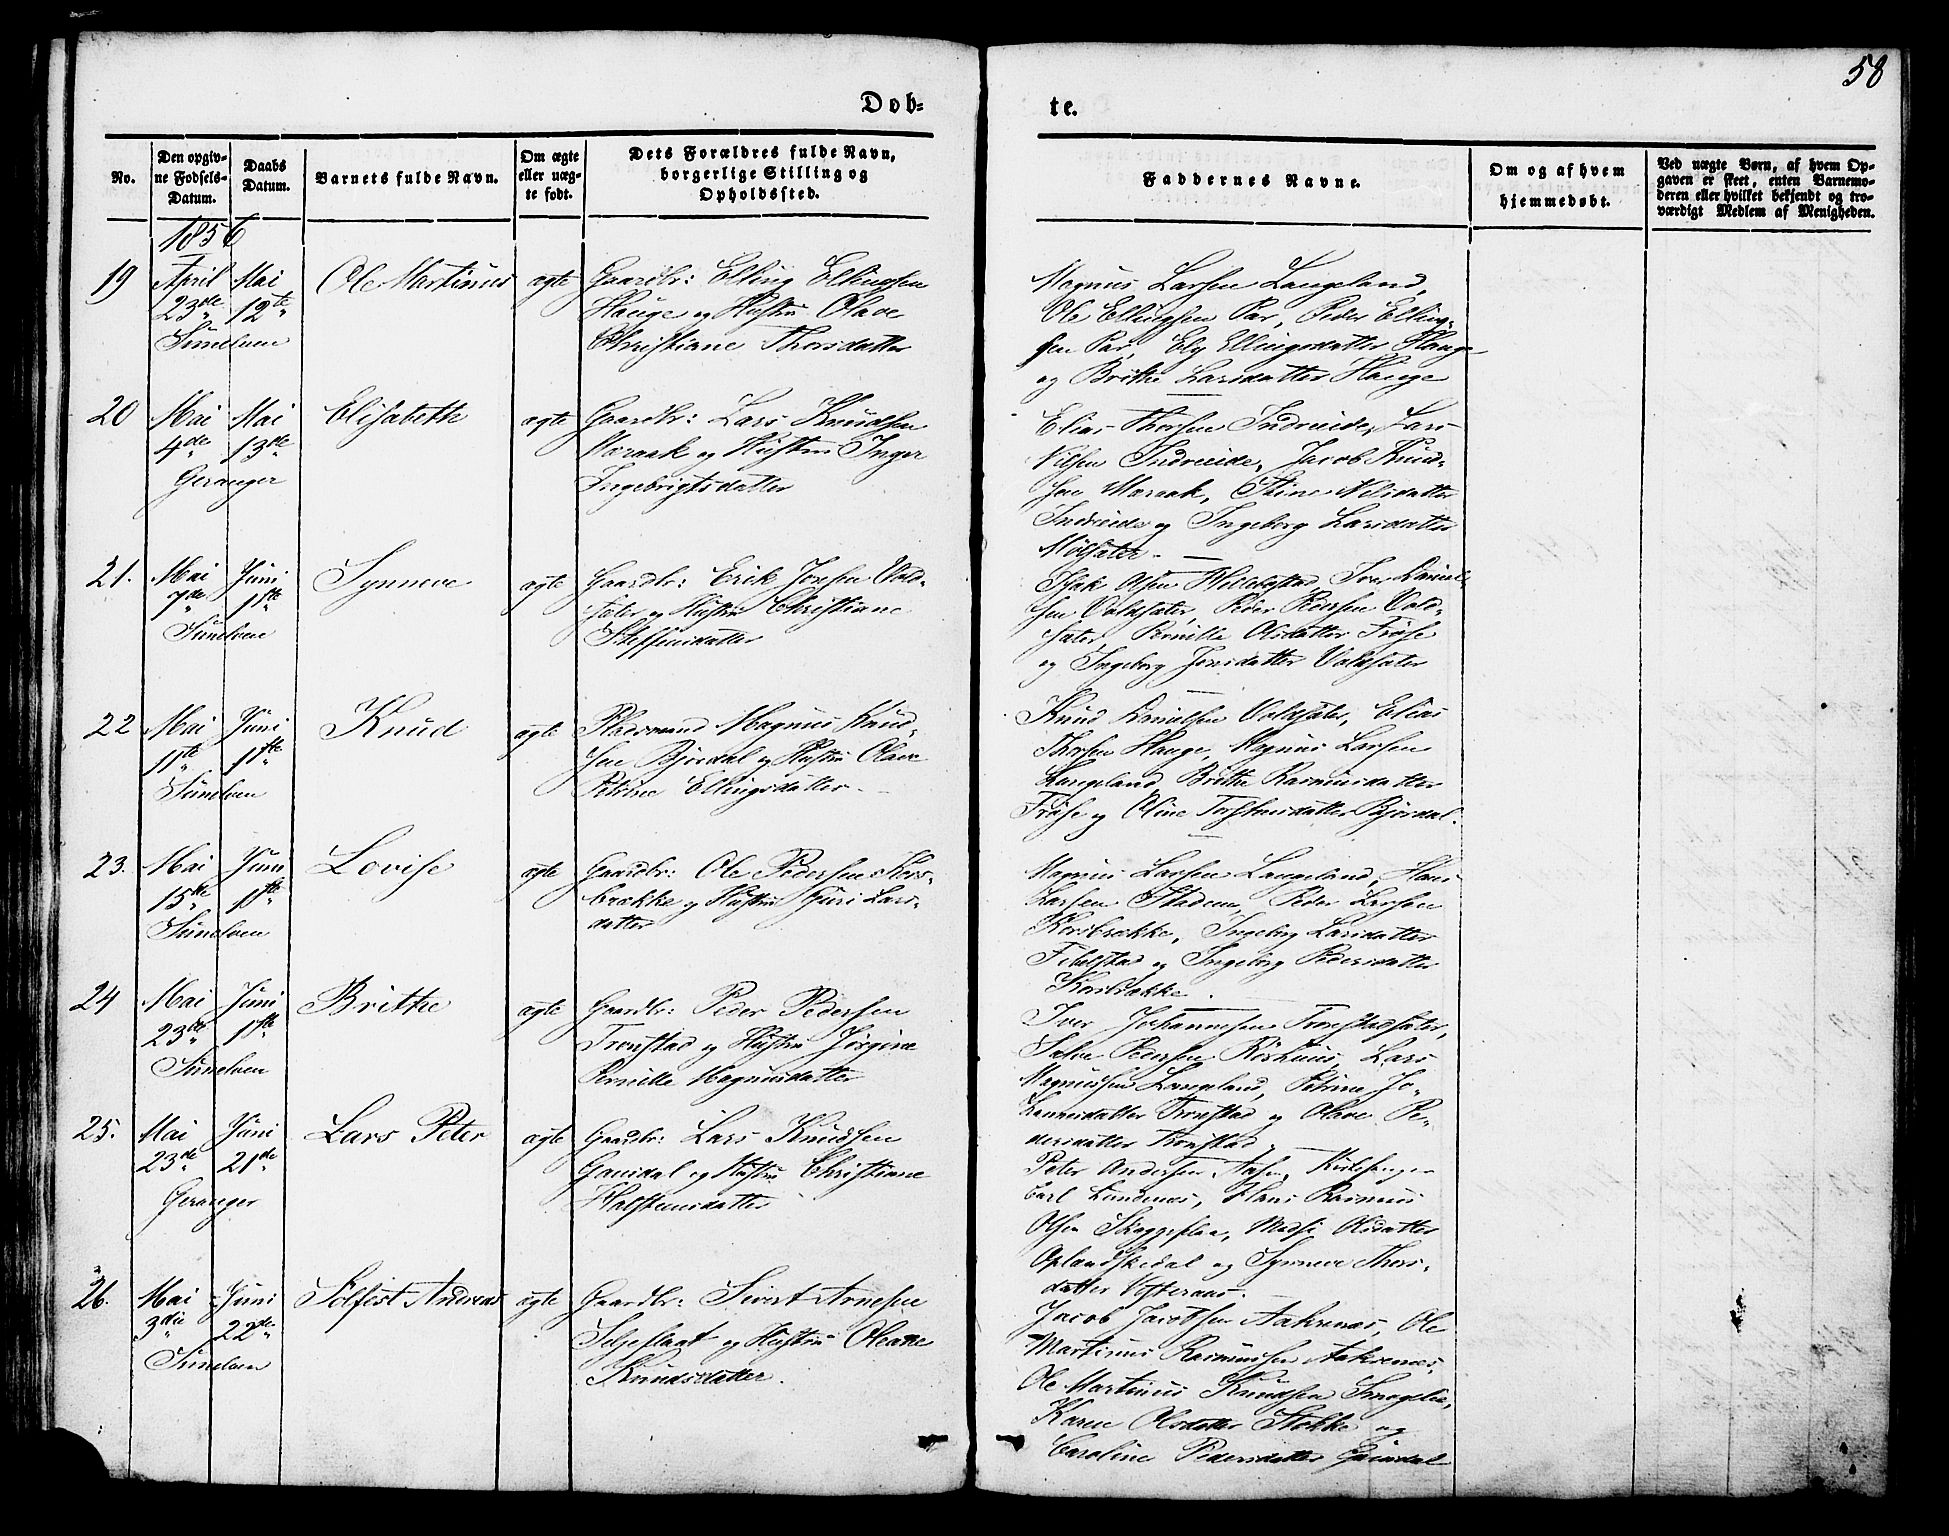 58
Døb-
te.
No.
Den opgiv-
ne Fødsels-
Datum.
Daabs
Datum.
Barnets fulde Navn.
Om ægte
eller uæg-
te født.
Dets Forældres fulde Navn,
borgerlige Stilling og
Opholdssted.
Faddernes Navne.
Om og af hvem
hjemmedøbt.
Ved uægte Børn, af hvem Op-
gaven er skeet, enten Barnemo-
deren eller hvilket bekjendt og tro-
værdigt Medlem af Menigheden.
1856
19 April 23de Mai 12te Ole Martinus ægte Gaardbr: Elling Ellingsen
Hauge og Hustru Olave
Sunelven Christiane Thorsdatter
Magnus Larsen Langeland,
Ole Ellingsen Par, Peder Elling-
sen Par, Ely Ellingsdatter Hauge
og Brithe Larsdatter Hauge
20 Mai 4de Mai 13de Elisabeth ægte Gaardbr: Lars Knudsen
Maraak og Hustru Inger
Geranger Ingebrigtsdatter
Elias Thorsen Indreeide, Lars
Nilsen Indreeide, Jacob Knud-
sen Maraak, Stine Nilsdatter
Indreeide og Ingeborg Larsdatter
Molsæter.
21. Mai 7de Juni 1ste Synneve ægte Gaardbr: Erik Jonsen Vold-
sæter og Hustru Christiane
Sunelven Steffensdatter
Isak Olsen Hellebostad, Iver Daniel-
sen Voldsæter, Peder Pedersen Vold-
sæter, Pernille Olsdatter Frøse
og Ingeborg Jonsdatter Voldsæter
22 Mai 11te Juni 1ste Knud ægte Pladsmand Magnus Knud-
sen Bjørdal og Hustru Olave
Sunelven Petrine Ellingsdatter.
Knud Knudsen Voldsæter, Elias
Thorsen Hauge, Magnus Larsen
Langeland, Brithe Rasmusdatter
Frøse og Oline Torstensdatter Bjørdal.
23. Mai 15te Juni 1ste Lovise ægte Gaardbr: Ole Pedersen Kors-
brække og Hustru Guri Lars-
Sunelven datter
Magnus Larsen Langeland, Hans
Larsen Stadem, Peder Larsen
Korsbrække, Ingeborg Larsdatter
Fibelstad og Ingeborg Pedersdatter
Korsbrække.
24 Mai 23de Juni 1ste Brithe ægte Gaardbr: Peder Pedersen
Tronstad og Hustru Jørgine
Sunelven Pernille Magnusdatter
Iver Johannesen Tronstadsæter,
Salve Pedersen Røshuus, Lars
Magnussen Langeland, Petrine Jo-
hannesdatter Tronstad og Olave Pe-
dersdatter Tronstad
25. Mai 23de Juni 21de Lars Peter ægte Gaardbr: Lars Knudsen
Gausdal og Hustru Christiane
Geranger Halstensdatter
Peter Andersen Aasen, Kirkesanger
Carl Lundenes, Hans Rasmus
Olsen Skaggeflaa, Madsi Olsdatter
Oplandskedal og Synneve Thors-
datter Vesteraas.
26. Mai 3die Juni 22de Sølfest Andreas ægte Gaardbr: Sivert Arnesen
Seljeflaat og Hustru Oleane
Sunelven Knudsdatter.
Jacob Jacobsen Aakrenæs, Ole
Martinus Rasmussen Aakrenæs,
Ole Martinus Knudsen Smogelie,
Karen Olsdatter Stokke og
Caroline Pedersdatter